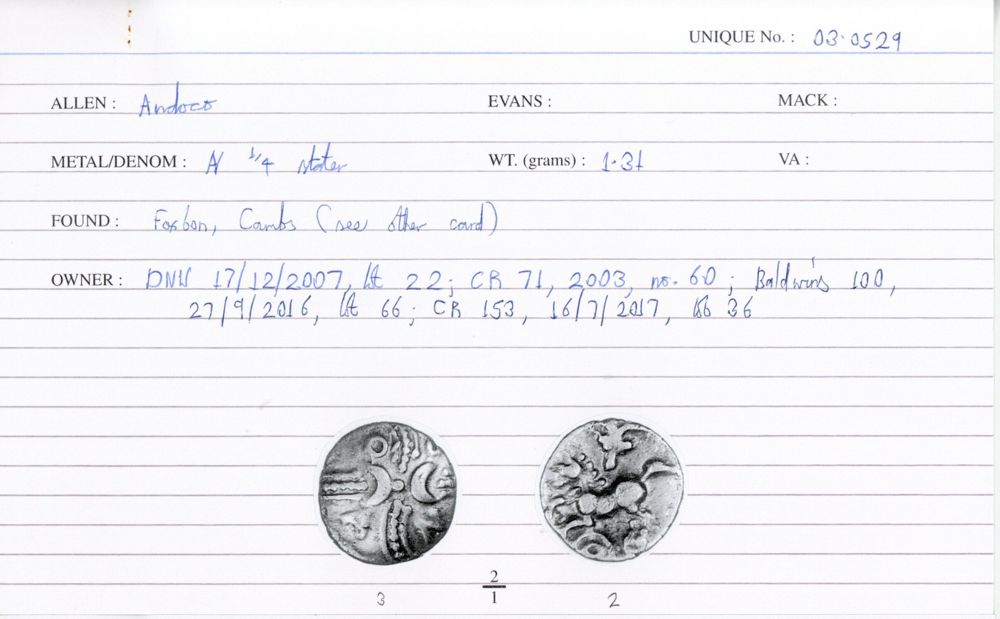 UNIQUE No. : 03.0529
ALLEN : Andoco EVANS : MACK :
METAL/DENOM : AV 1/4 stater WT. (grams) : 1.31 VA :
FOUND : Foxton, Cambs (see other card)
OWNER : DNW 17/12/2007, lot 22; CR 71, 2003, no. 60; Baldwin's 100,
27/9/2016, lot 66; CR 153, 16/7/2017, lot 36
2
1
3 2